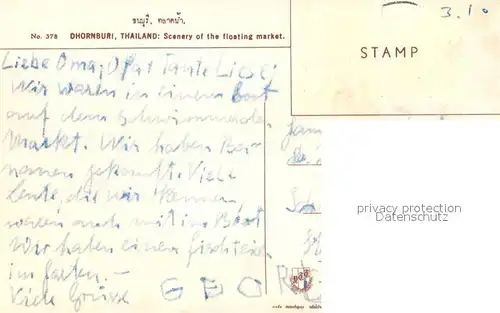 ธนบุรี, ตลาดน้ำ.
No. 378 DHORNBURI, THAILAND: Scenery of the floating market.
3.10
STAMP
Liebe Oma, Opa + Tante Liesl
Wir waren in einem Boot
auf dem schwimmenden
Markt. Wir haben Ba-
nanen gekauft. Viele
Leute, die wir kennen,
waren auch mit im Boot
Wir haben einen Fischteich
im Garten. —
Viele Grüsse GEORG
protected by
Datenschutz